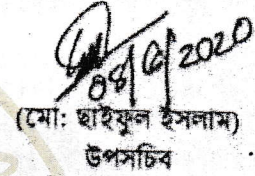 ০৪/৫/2020
(মো: ছাইফুল ইসলাম)
উপসচিব